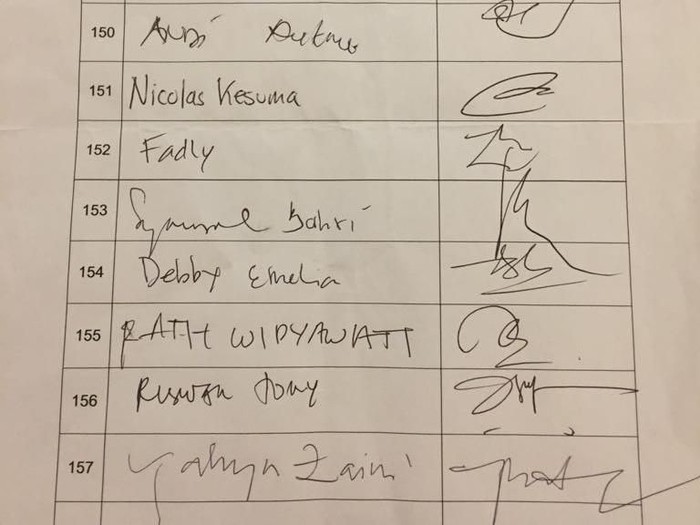 150 Andi
151 Nicolas Kesuma
152 Fadly
153 Syamsul Bahri
154 Debby Emelia
155 RATIH WIDYAWATI
156 Ruswan
157 Yahya Zaini